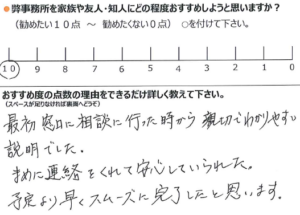 ●弊事務所を家族や友人・知人にどの程度おすすめしようと思いますか?
(勧めたい10点 ～ 勧めたくない0点) ○を付けて下さい。
10 9 8 7 6 5 4 3 2 1 0
おすすめ度の点数の理由をできるだけ詳しく教えて下さい。
(スペースが足りなければ裏面へどうぞ)
最初窓口に相談に行った時から親切でわかりやすい
説明でした。
まめに連絡をくれて安心していられた。
予定より早くスムーズに完了したと思います。